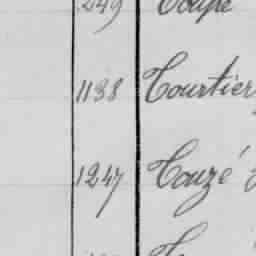 249 Coupé
1138 Courtier
1247 Couzé